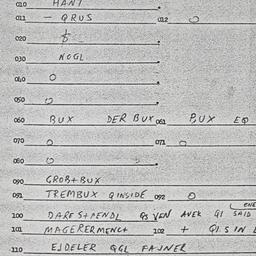 010 HANT
011 - QRUS 012 O
020
030 NOGL
040 O
050 O
060 BUX DER BUX 061 BUX EQ
070 O 071 O
080 O
090 GROB+BUX
091 TREMBUX QINSIDE 092 O
100 DARES+PENDL QS VEN AVEK QI SAID
101 MAGERERMENCT 102 + QI.S IN
110 EJDELER QGL FAJNER